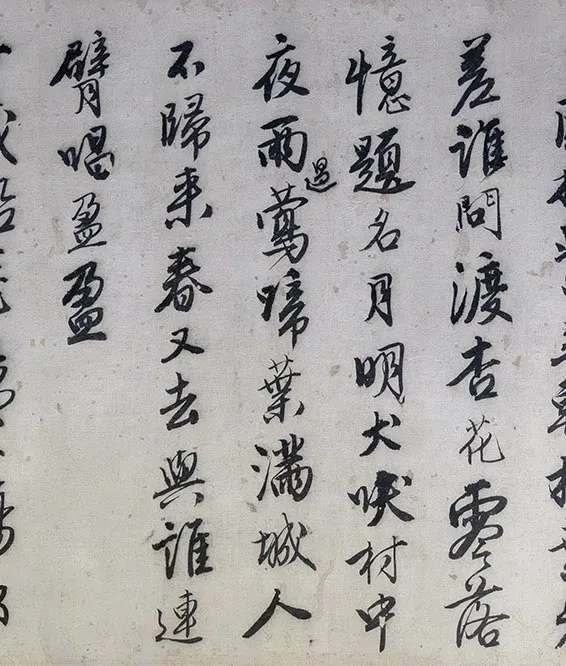 差誰問渡杏花零落
憶題名月明犬吠村中
夜雨過鶯啼葉滿城人
不歸來春又去與誰連
臂唱盈盈